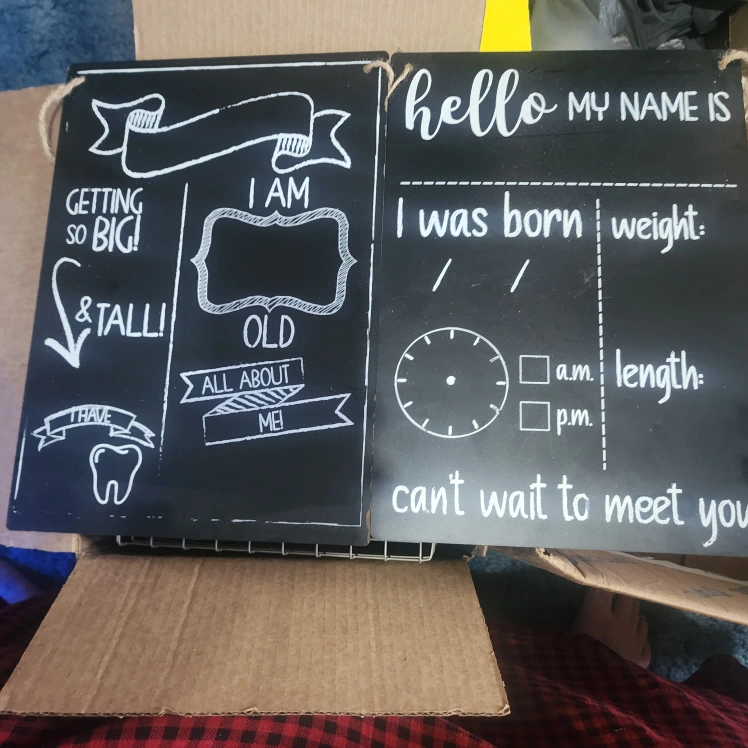 GETTING
SO BIG!
& TALL!
I HAVE
I AM
OLD
ALL ABOUT
ME!
hello MY NAME IS
I was born
/ /
a.m.
p.m.
weight:
length:
can't wait to meet you